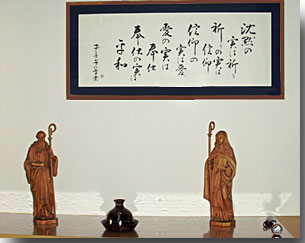 沈黙の
実は祈り
祈りの実は
信仰
信仰の
実は愛
愛の実は
奉仕
奉仕の実は
平和